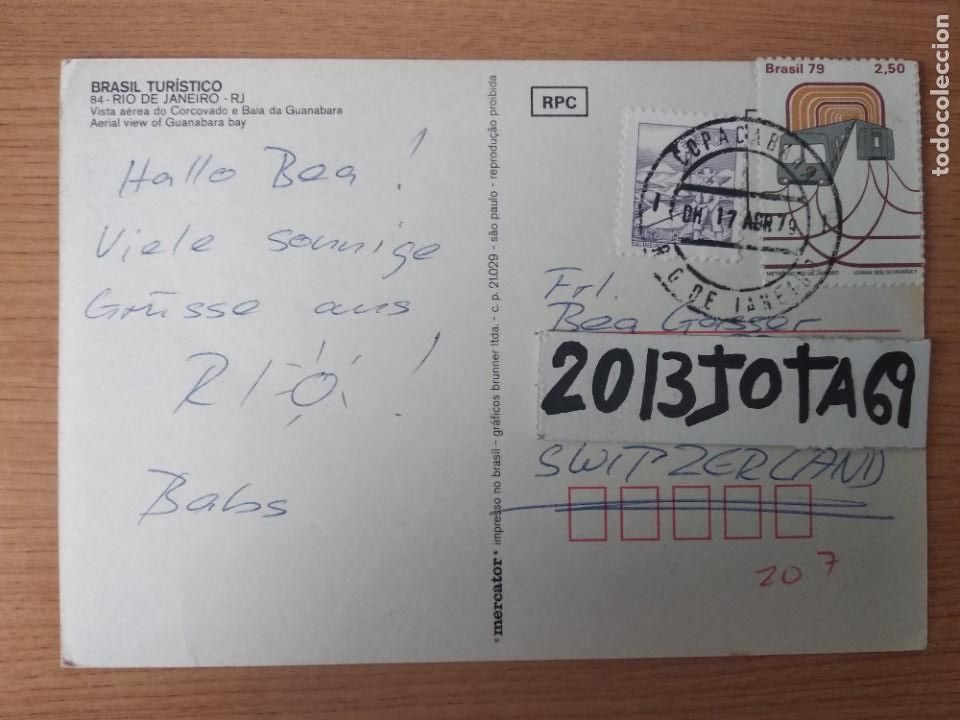 BRASIL TURÍSTICO
84 - RIO DE JANEIRO - RJ
Vista aérea do Corcovado e Baía da Guanabara
Aerial view of Guanabara bay
Hallo Bea !
Viele sonnige
Grüsse aus
RIO !
Babs
mercator impresso no brasil - gráficos brunner ltda. - c. p. 21.029 - são paulo - reprodução proibida
RPC
Brasil 79 2,50
METRÔ DO RIO DE JANEIRO
COPACABANA
17 ABR 79
RIO DE JANEIRO
Frl.
Bea Gasser
2013JOTA69
SWITZERLAND
20 7
todocoleccion